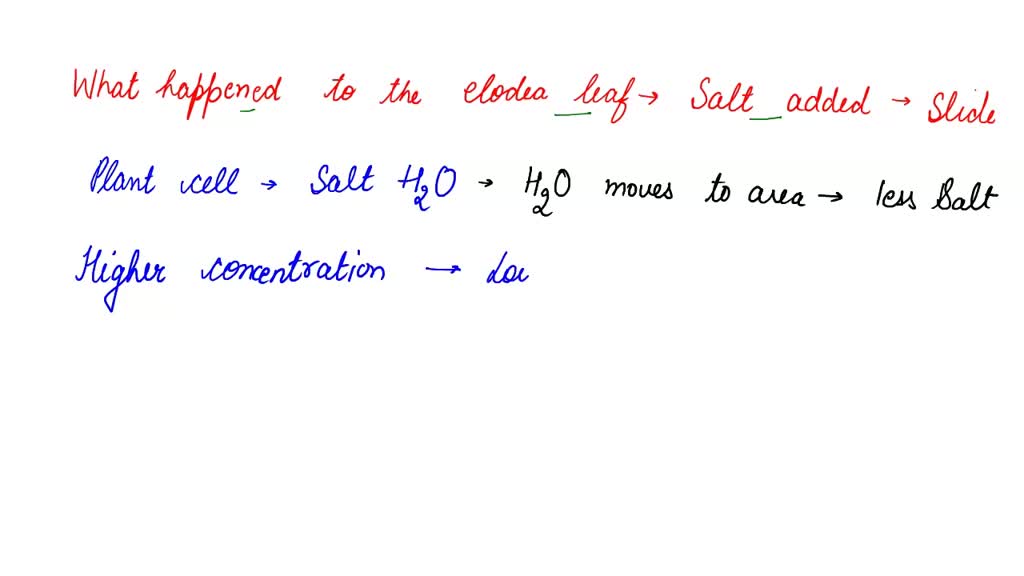 What happened to the elodea leaf → Salt added → Slide
Plant cell → Salt H₂O → H₂O moves to area → less Salt
Higher concentration → Low